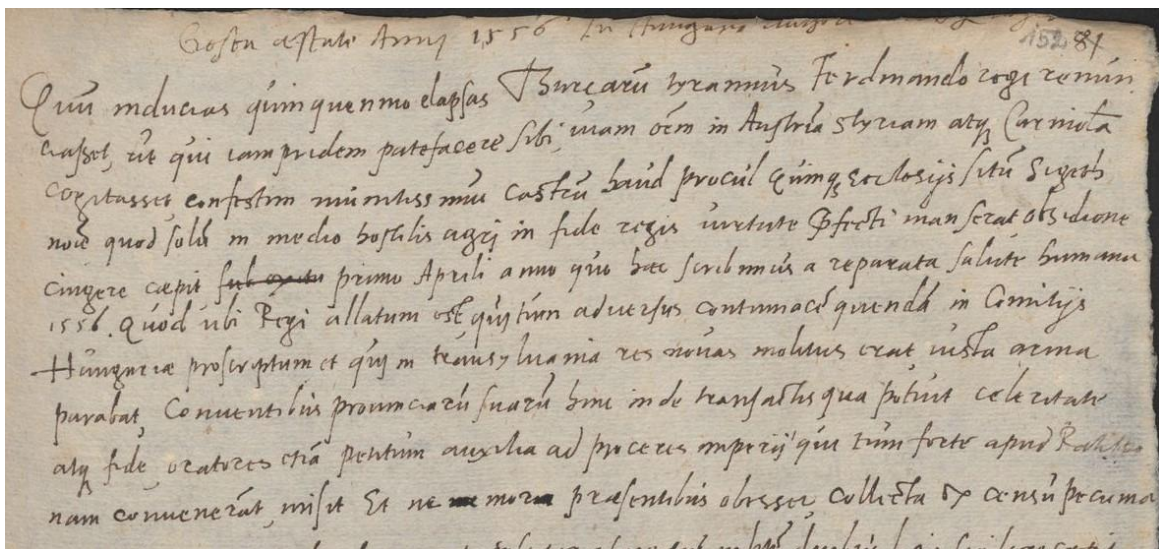 Gesta aestate Anni 1556 In Hungaria
152 81
Quũ inducias quinquennio elapsas Turcarũ tyrannus Ferdinando regi renun
ciasset, ut qui iampridem patefacere sibi, uiam oẽm in Austria Styriam atq Carniolã
cogitasset confestim munitissimũ castrũ haud procul Quinq Ecclesijs sitũ Sigeth
noĩe quod solũ in medio hostilis agrj in fide regis uirtute Pfecti manserat obsidione
cingere cæpit sub primo Aprili anno quo hæc scribimus a reparata salute humana
1556. Quod ubi Regi allatum est, qui tum aduersus contumacẽ quendã in Comitijs
Hungariæ proscriptum et quj in transyluania res nouas molitus erat iusta arma
parabat, Conuentibus prouinciarũ suarũ hinc inde transactis qua potuit celeritate
atq fide, oratores etiã petitum auxilia ad proceres imperij qui tum forte apud Ratisbo
nam conuenerãt, misit Et ne mora præsentibus obesset collecta ex censu pecunia